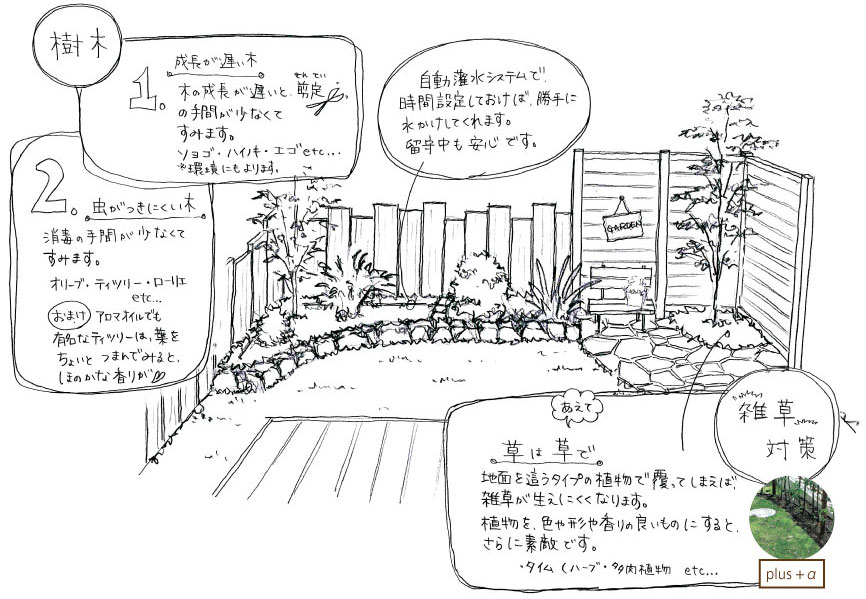 樹木
1.
成長が遅い木
木の成長が遅いと、剪定
せんてい
の手間が少なくて
すみます。
ソヨゴ・ハイノキ・エゴetc...
※環境にもよります。
2.
虫がつきにくい木
消毒の手間が少なくて
すみます。
オリーブ・ティツリー・ローリエ
etc...
おまけ アロマオイルでも
有名なティツリーは、葉を
ちょいと つまんでみると、
ほのかな香りが♡
自動灌水システムで、
時間設定しておけば、勝手に
水かけしてくれます。
留守中も安心です。
GARDEN
雑草
対策
あえて
草は草で
地面を這うタイプの植物で覆ってしまえば、
雑草が生えにくくなります。
植物を、色や形や香りの良いものにすると、
さらに素敵です。
・タイム(ハーブ・多肉植物 etc...
plus+α